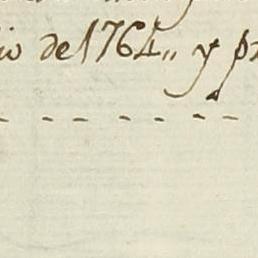 io de 1764,, y pr
- - - - - - -